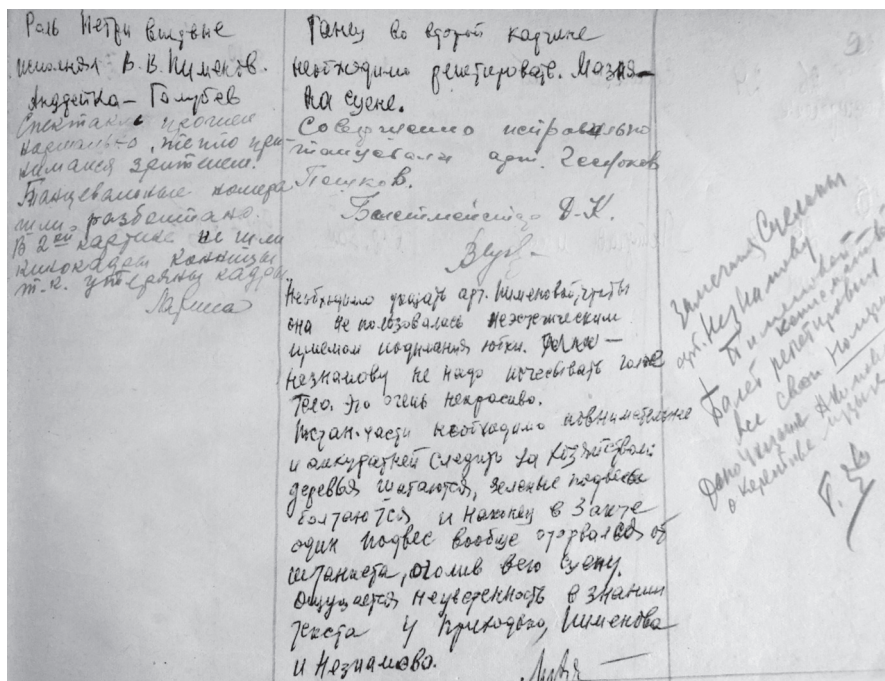 Роль Петри впервые
исполнял В. В. Пименов.
Андрейка – Голубев
Спектакль прошел
нормально, тепло при-
нимался зрителем.
Танцевальные номера
шли разболтано.
В 2ой картине не шли
кинокадры конницы
т.к. утеряны кадры
Ларина
Танец во второй картине
необходимо репетировать. Мазня
на сцене.
Совершенно неправильно
танцевали арт.
Пешков.
Балетмейстер Д-К.
Необходимо указать арт. Пименовой, чтобы
она не пользовалась неэстетическим
приемом поднимания юбки.
Незнамову не надо почесывать голое
тело. Это очень некрасиво.
Постан. части необходимо повнимательне
и аккуратней следить за хозяйством:
деревья шатаются, зеленые подвесы
болтаются и наконец в 3 акте
один подвес вообще оторвался от
штанкета, оголив всю сцену.
Ощущается неуверенность в знании
текста у Приходько, Пименова
и Незнамова.
9
Замечания сделаны
арт. Незнамову
Пименовой
Балет репетировал
все свои номера
о